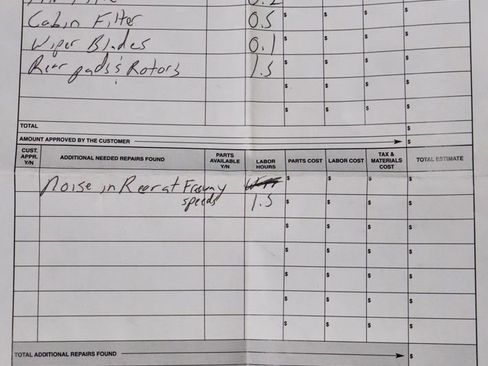 Cabin Filter 0.5 $
Wiper Blades 0.1 $
Rear pads & Rotors 1.5 $
TOTAL $
AMOUNT APPROVED BY THE CUSTOMER $
CUST. APPR. Y/N ADDITIONAL NEEDED REPAIRS FOUND PARTS AVAILABLE Y/N LABOR HOURS PARTS COST LABOR COST TAX & MATERIALS COST TOTAL ESTIMATE
Noise in Rear at Freeway $ $ $ $
speeds 1.5
$ $ $ $
$ $ $ $
$ $ $ $
$ $ $ $
$ $ $ $
$ $ $ $
TOTAL ADDITIONAL REPAIRS FOUND $